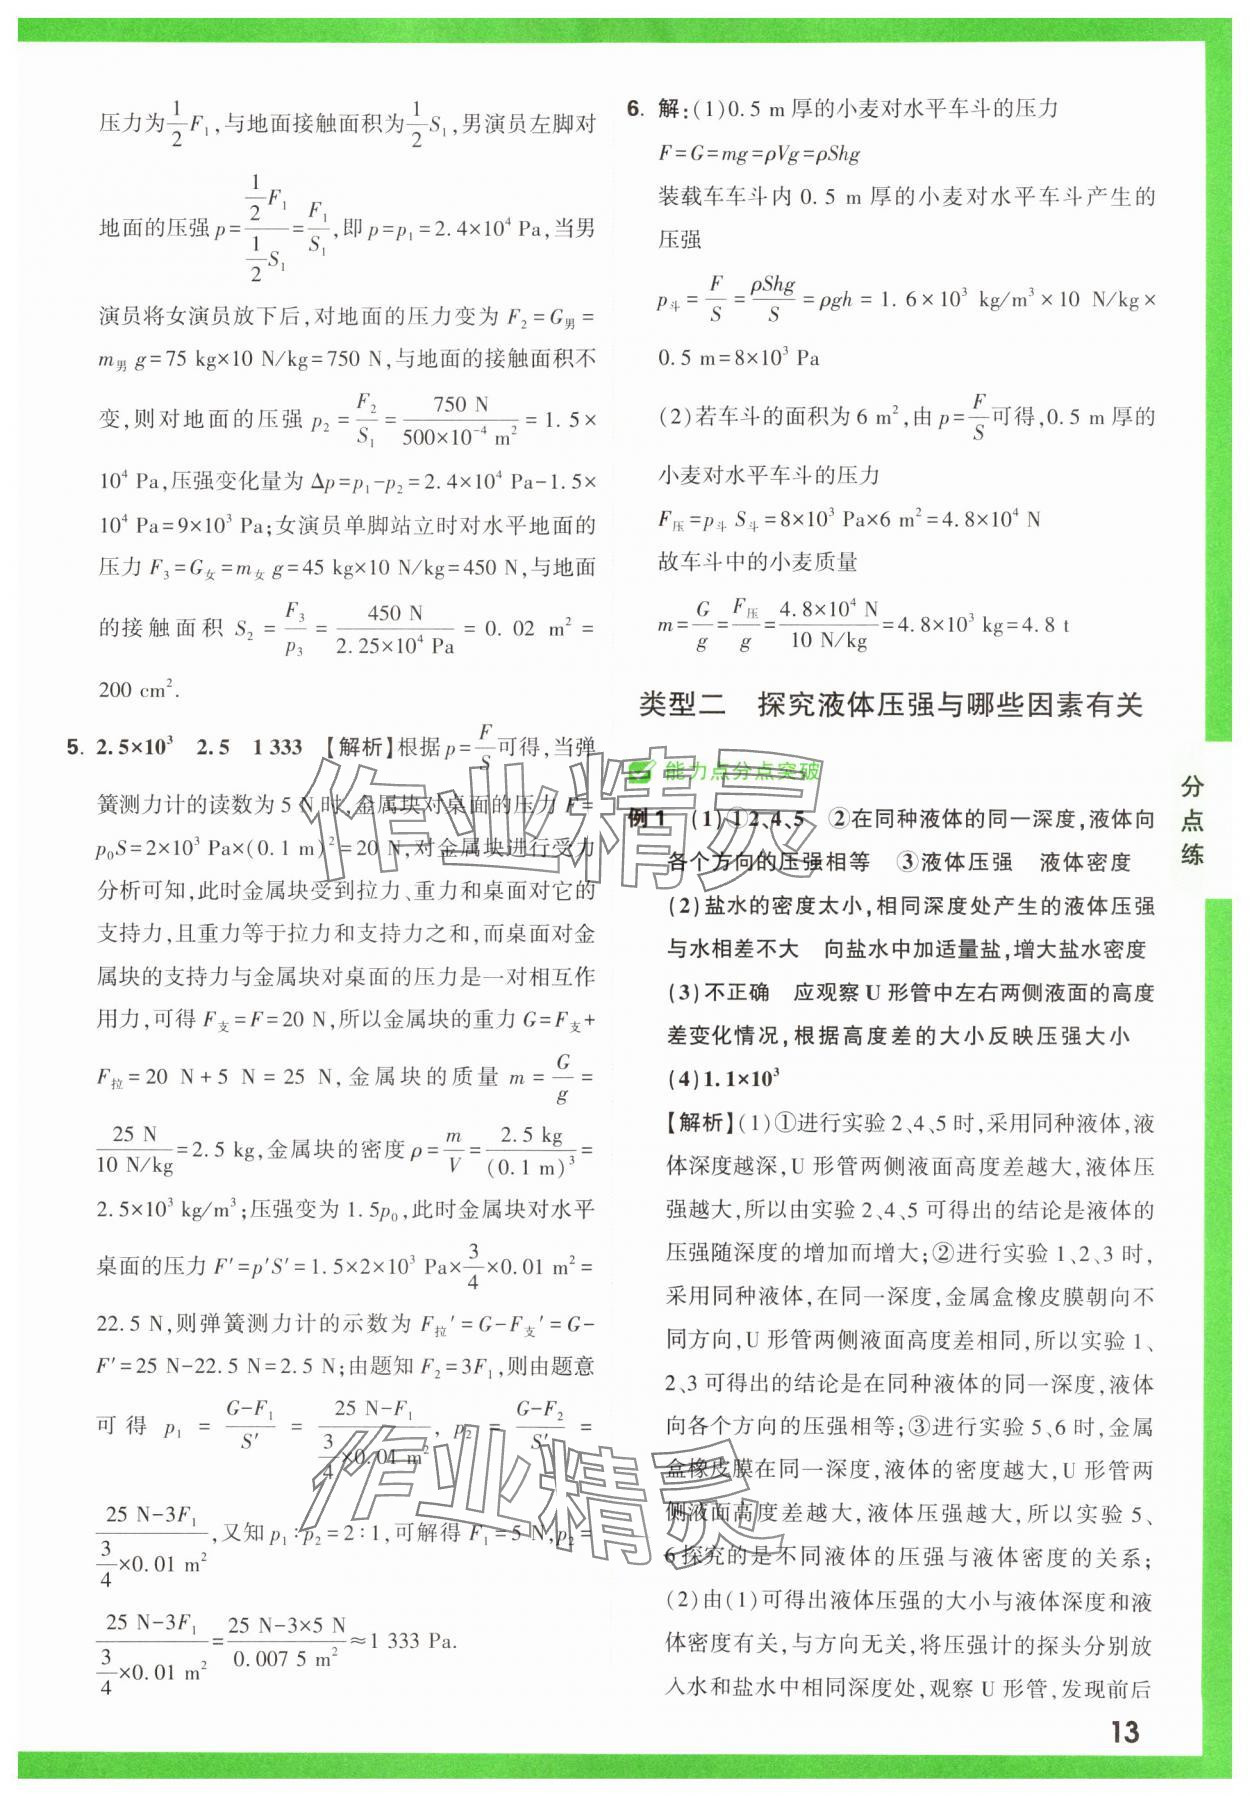 压力为1/2F₁,与地面接触面积为1/2S₁,男演员左脚对
地面的压强p=(1/2F₁)/(1/2S₁)=F₁/S₁,即p=p₁=2.4×10⁴ Pa,当男
演员将女演员放下后,对地面的压力变为F₂=G男=
m男g=75 kg×10 N/kg=750 N,与地面的接触面积不
变,则对地面的压强p₂=F₂/S₁=750 N/(500×10⁻⁴ m²)=1.5×
10⁴ Pa,压强变化量为Δp=p₁-p₂=2.4×10⁴ Pa-1.5×
10⁴ Pa=9×10³ Pa;女演员单脚站立时对水平地面的
压力F₃=G女=m女g=45 kg×10 N/kg=450 N,与地面
的接触面积S₂=F₃/p₃=450 N/(2.25×10⁴ Pa)=0.02 m²=
200 cm².
5. 2.5×10³ 2.5 1 333 【解析】根据p=F/S可得,当弹
簧测力计的读数为5 N时,金属块对桌面的压力F=
p₀S=2×10³ Pa×(0.1 m)²=20 N,对金属块进行受力
分析可知,此时金属块受到拉力、重力和桌面对它的
支持力,且重力等于拉力和支持力之和,而桌面对金
属块的支持力与金属块对桌面的压力是一对相互作
用力,可得F支=F=20 N,所以金属块的重力G=F支+
F拉=20 N+5 N=25 N,金属块的质量m=G/g=
25 N/(10 N/kg)=2.5 kg,金属块的密度ρ=m/V=2.5 kg/(0.1 m)³=
2.5×10³ kg/m³;压强变为1.5p₀,此时金属块对水平
桌面的压力F′=p′S′=1.5×2×10³ Pa×3/4×0.01 m²=
22.5 N,则弹簧测力计的示数为F拉′=G-F支′=G-
F′=25 N-22.5 N=2.5 N;由题知F₂=3F₁,则由题意
可得p₁=(G-F₁)/S′=(25 N-F₁)/(3/4×0.01 m²),p₂=(G-F₂)/S′=
(25 N-3F₁)/(3/4×0.01 m²),又知p₁∶p₂=2∶1,可解得F₁=5 N,p₂=
(25 N-3F₁)/(3/4×0.01 m²)=(25 N-3×5 N)/(0.007 5 m²)≈1 333 Pa.
6. 解:(1)0.5 m厚的小麦对水平车斗的压力
F=G=mg=ρVg=ρShg
装载车车斗内0.5 m厚的小麦对水平车斗产生的
压强
p斗=F/S=ρShg/S=ρgh=1.6×10³ kg/m³×10 N/kg×
0.5 m=8×10³ Pa
(2)若车斗的面积为6 m²,由p=F/S可得,0.5 m厚的
小麦对水平车斗的压力
F压=p斗S斗=8×10³ Pa×6 m²=4.8×10⁴ N
故车斗中的小麦质量
m=G/g=F压/g=(4.8×10⁴ N)/(10 N/kg)=4.8×10³ kg=4.8 t
类型二 探究液体压强与哪些因素有关
能力点分点突破
例1 (1)①2、4、5 ②在同种液体的同一深度,液体向
各个方向的压强相等 ③液体压强 液体密度
(2)盐水的密度太小,相同深度处产生的液体压强
与水相差不大 向盐水中加适量盐,增大盐水密度
(3)不正确 应观察U形管中左右两侧液面的高度
差变化情况,根据高度差的大小反映压强大小
(4)1.1×10³
【解析】(1)①进行实验2、4、5时,采用同种液体,液
体深度越深,U形管两侧液面高度差越大,液体压
强越大,所以由实验2、4、5可得出的结论是液体的
压强随深度的增加而增大;②进行实验1、2、3时,
采用同种液体,在同一深度,金属盒橡皮膜朝向不
同方向,U形管两侧液面高度差相同,所以实验1、
2、3可得出的结论是在同种液体的同一深度,液体
向各个方向的压强相等;③进行实验5、6时,金属
盒橡皮膜在同一深度,液体的密度越大,U形管两
侧液面高度差越大,液体压强越大,所以实验5、
6探究的是不同液体的压强与液体密度的关系;
(2)由(1)可得出液体压强的大小与液体深度和液
体密度有关,与方向无关,将压强计的探头分别放
入水和盐水中相同深度处,观察U形管,发现前后
分点练
13
作业精灵
作业精灵